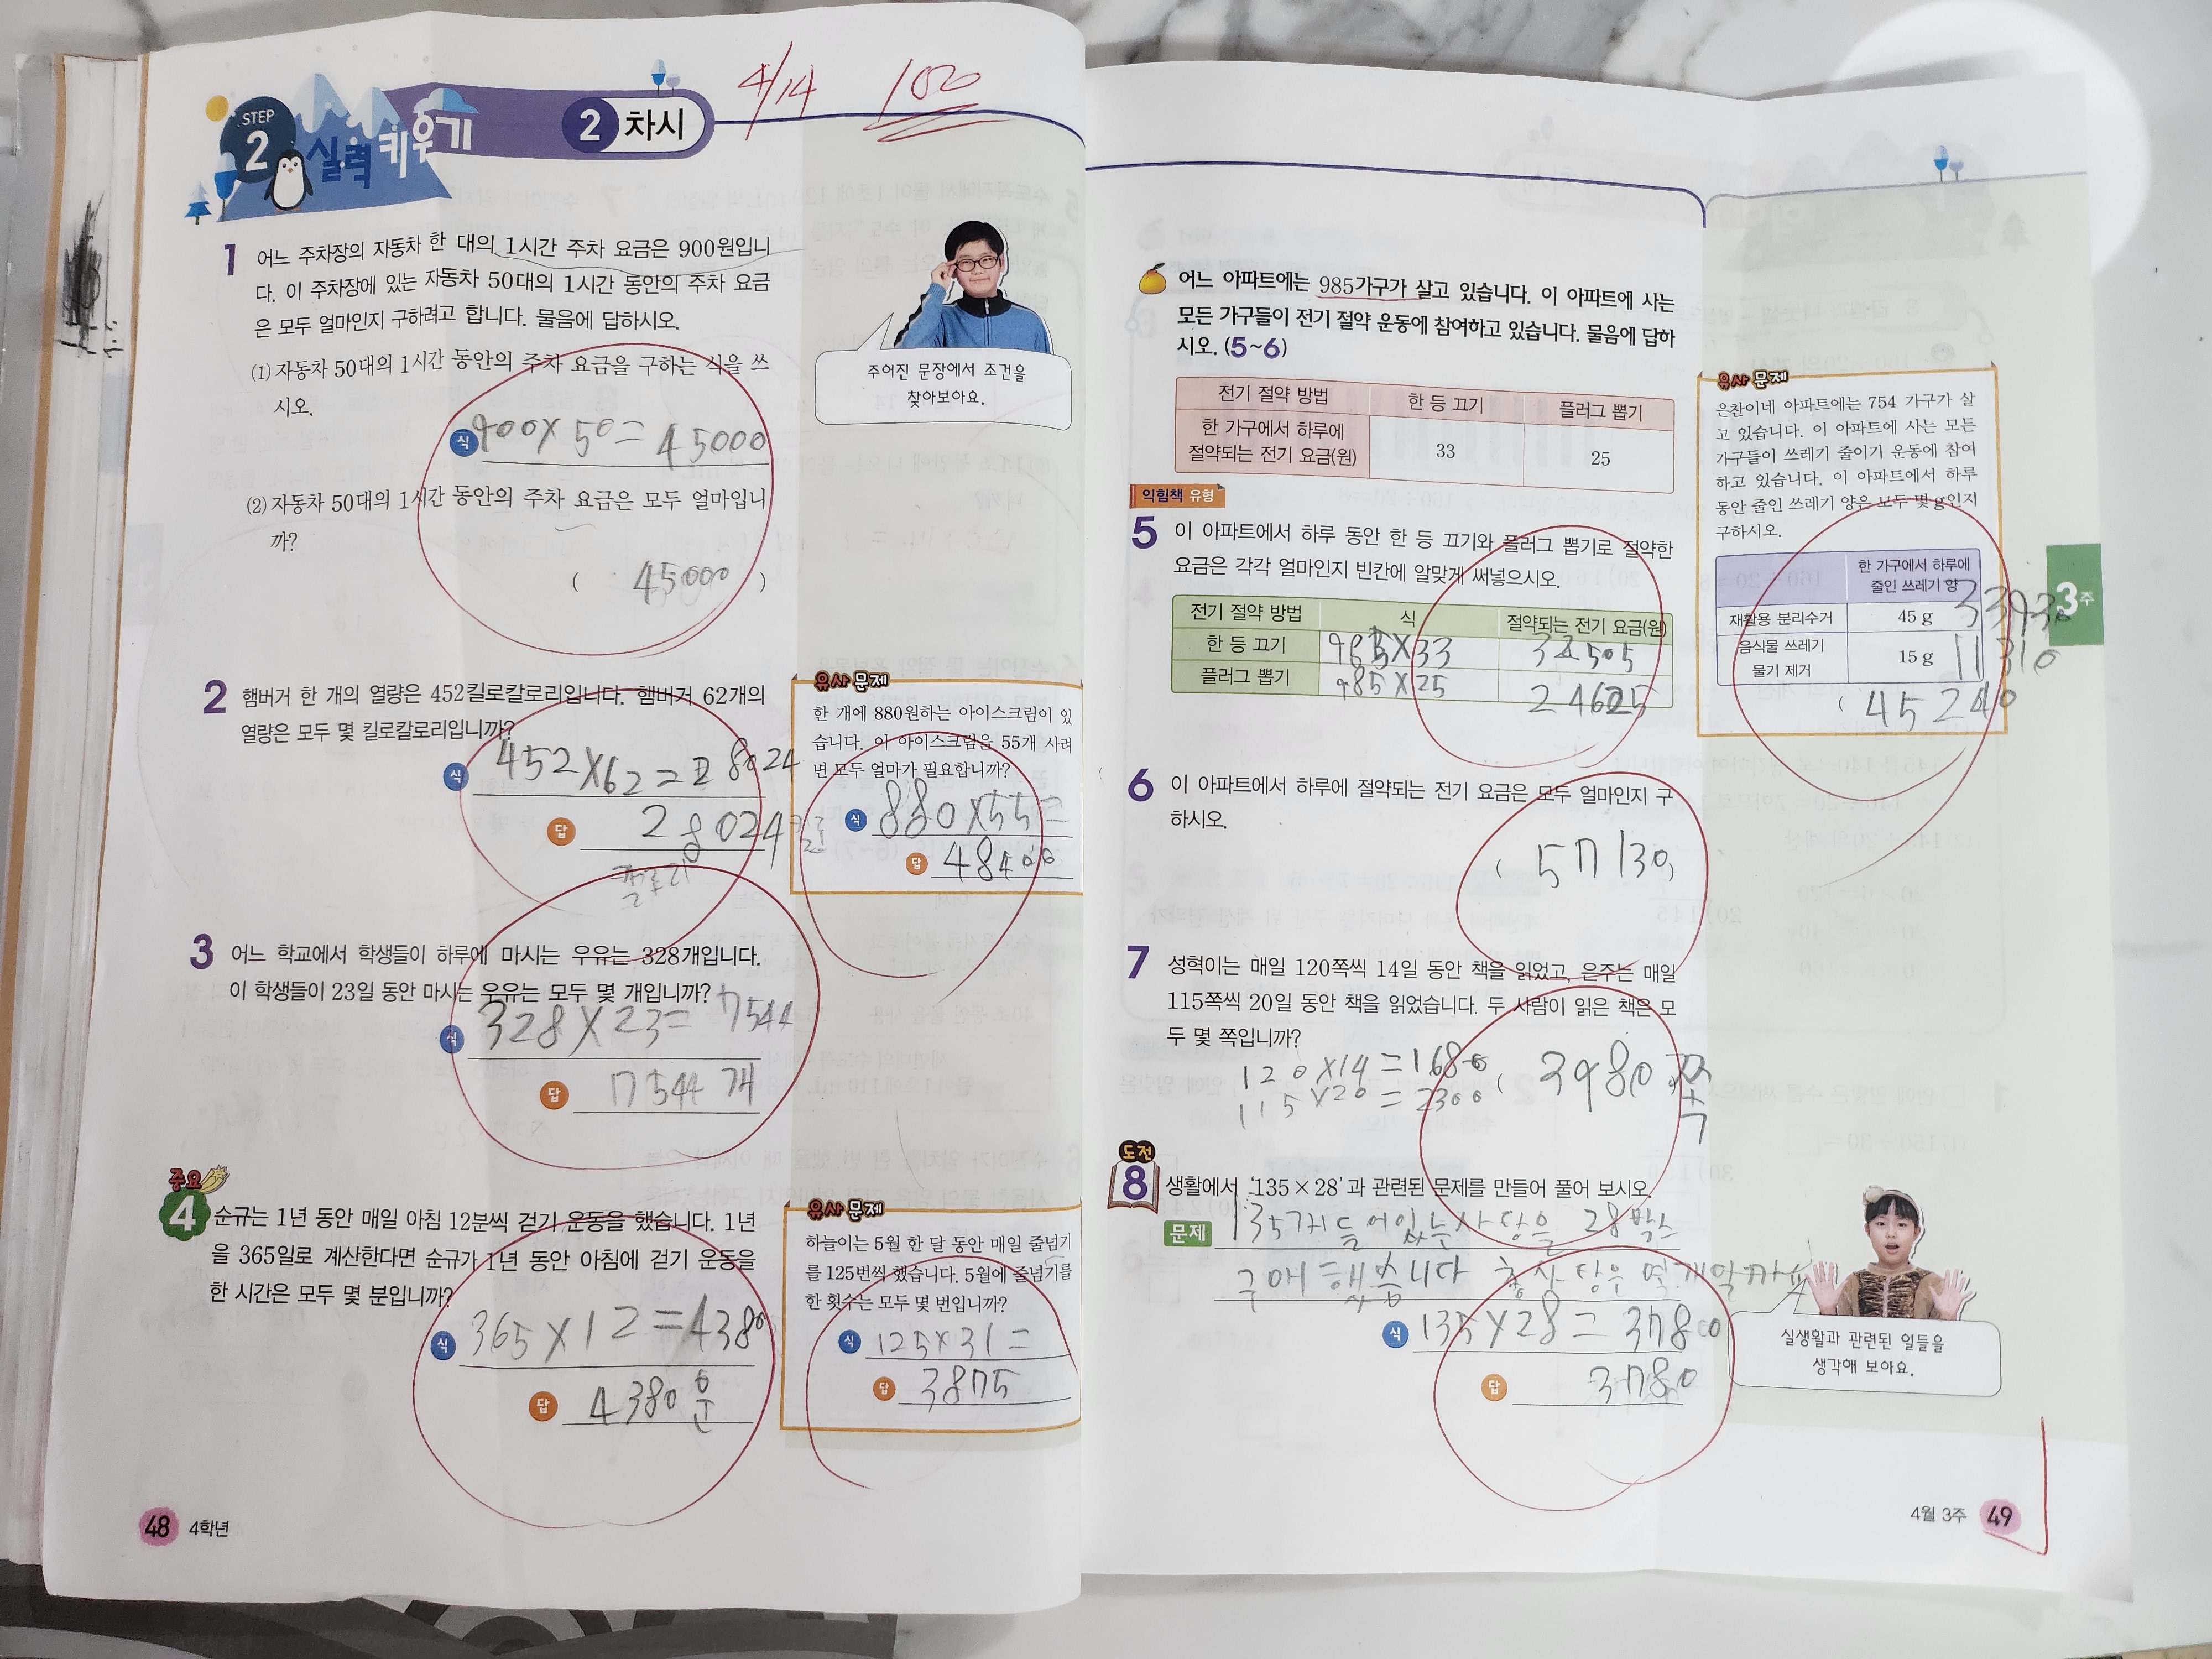 STEP
2 실력 키우기
2 차시
4/14 100
1 어느 주차장의 자동차 한 대의 1시간 주차 요금은 900원입니
다. 이 주차장에 있는 자동차 50대의 1시간 동안의 주차 요금
은 모두 얼마인지 구하려고 합니다. 물음에 답하시오.
(1) 자동차 50대의 1시간 동안의 주차 요금을 구하는 식을 쓰
시오.
식 900×50=45000
(2) 자동차 50대의 1시간 동안의 주차 요금은 모두 얼마입니
까?
( 45000 )
주어진 문장에서 조건을
찾아보아요.
2 햄버거 한 개의 열량은 452킬로칼로리입니다. 햄버거 62개의
열량은 모두 몇 킬로칼로리입니까?
식 452×62=28024
답 28024 킬로
칼로리
유사 문제
한 개에 880원하는 아이스크림이 있
습니다. 이 아이스크림을 55개 사려
면 모두 얼마가 필요합니까?
식 880×55=
답 48400
3 어느 학교에서 학생들이 하루에 마시는 우유는 328개입니다.
이 학생들이 23일 동안 마시는 우유는 모두 몇 개입니까?
식 328×23=7544
답 7544 개
중요
4 순규는 1년 동안 매일 아침 12분씩 걷기 운동을 했습니다. 1년
을 365일로 계산한다면 순규가 1년 동안 아침에 걷기 운동을
한 시간은 모두 몇 분입니까?
식 365×12=4380
답 4380 분
유사 문제
하늘이는 5월 한 달 동안 매일 줄넘기
를 125번씩 했습니다. 5월에 줄넘기를
한 횟수는 모두 몇 번입니까?
식 125×31=
답 3875
48 4학년
어느 아파트에는 985가구가 살고 있습니다. 이 아파트에 사는
모든 가구들이 전기 절약 운동에 참여하고 있습니다. 물음에 답하
시오. (5~6)
전기 절약 방법 한 등 끄기 플러그 뽑기
한 가구에서 하루에
절약되는 전기 요금(원) 33 25
익힘책 유형
5 이 아파트에서 하루 동안 한 등 끄기와 플러그 뽑기로 절약한
요금은 각각 얼마인지 빈칸에 알맞게 써넣으시오.
전기 절약 방법 식 절약되는 전기 요금(원)
한 등 끄기 985×33 32505
플러그 뽑기 985×25 24625
유사 문제
은찬이네 아파트에는 754 가구가 살
고 있습니다. 이 아파트에 사는 모든
가구들이 쓰레기 줄이기 운동에 참여
하고 있습니다. 이 아파트에서 하루
동안 줄인 쓰레기 양은 모두 몇 g인지
구하시오.
한 가구에서 하루에
줄인 쓰레기 양
재활용 분리수거 45 g 33930
음식물 쓰레기
물기 제거 15 g 11310
( 45240
3주
6 이 아파트에서 하루에 절약되는 전기 요금은 모두 얼마인지 구
하시오.
( 57130)
7 성혁이는 매일 120쪽씩 14일 동안 책을 읽었고, 은주는 매일
115쪽씩 20일 동안 책을 읽었습니다. 두 사람이 읽은 책은 모
두 몇 쪽입니까?
120×14=1680
115×20=2300
( 3980 쪽
도전
8 생활에서 '135×28'과 관련된 문제를 만들어 풀어 보시오.
문제 135개 들어있는 사탕을 28박스
구매했습니다 총 사탕은 몇개일까요
식 135×28=3780
답 3780
실생활과 관련된 일들을
생각해 보아요.
4월 3주 49